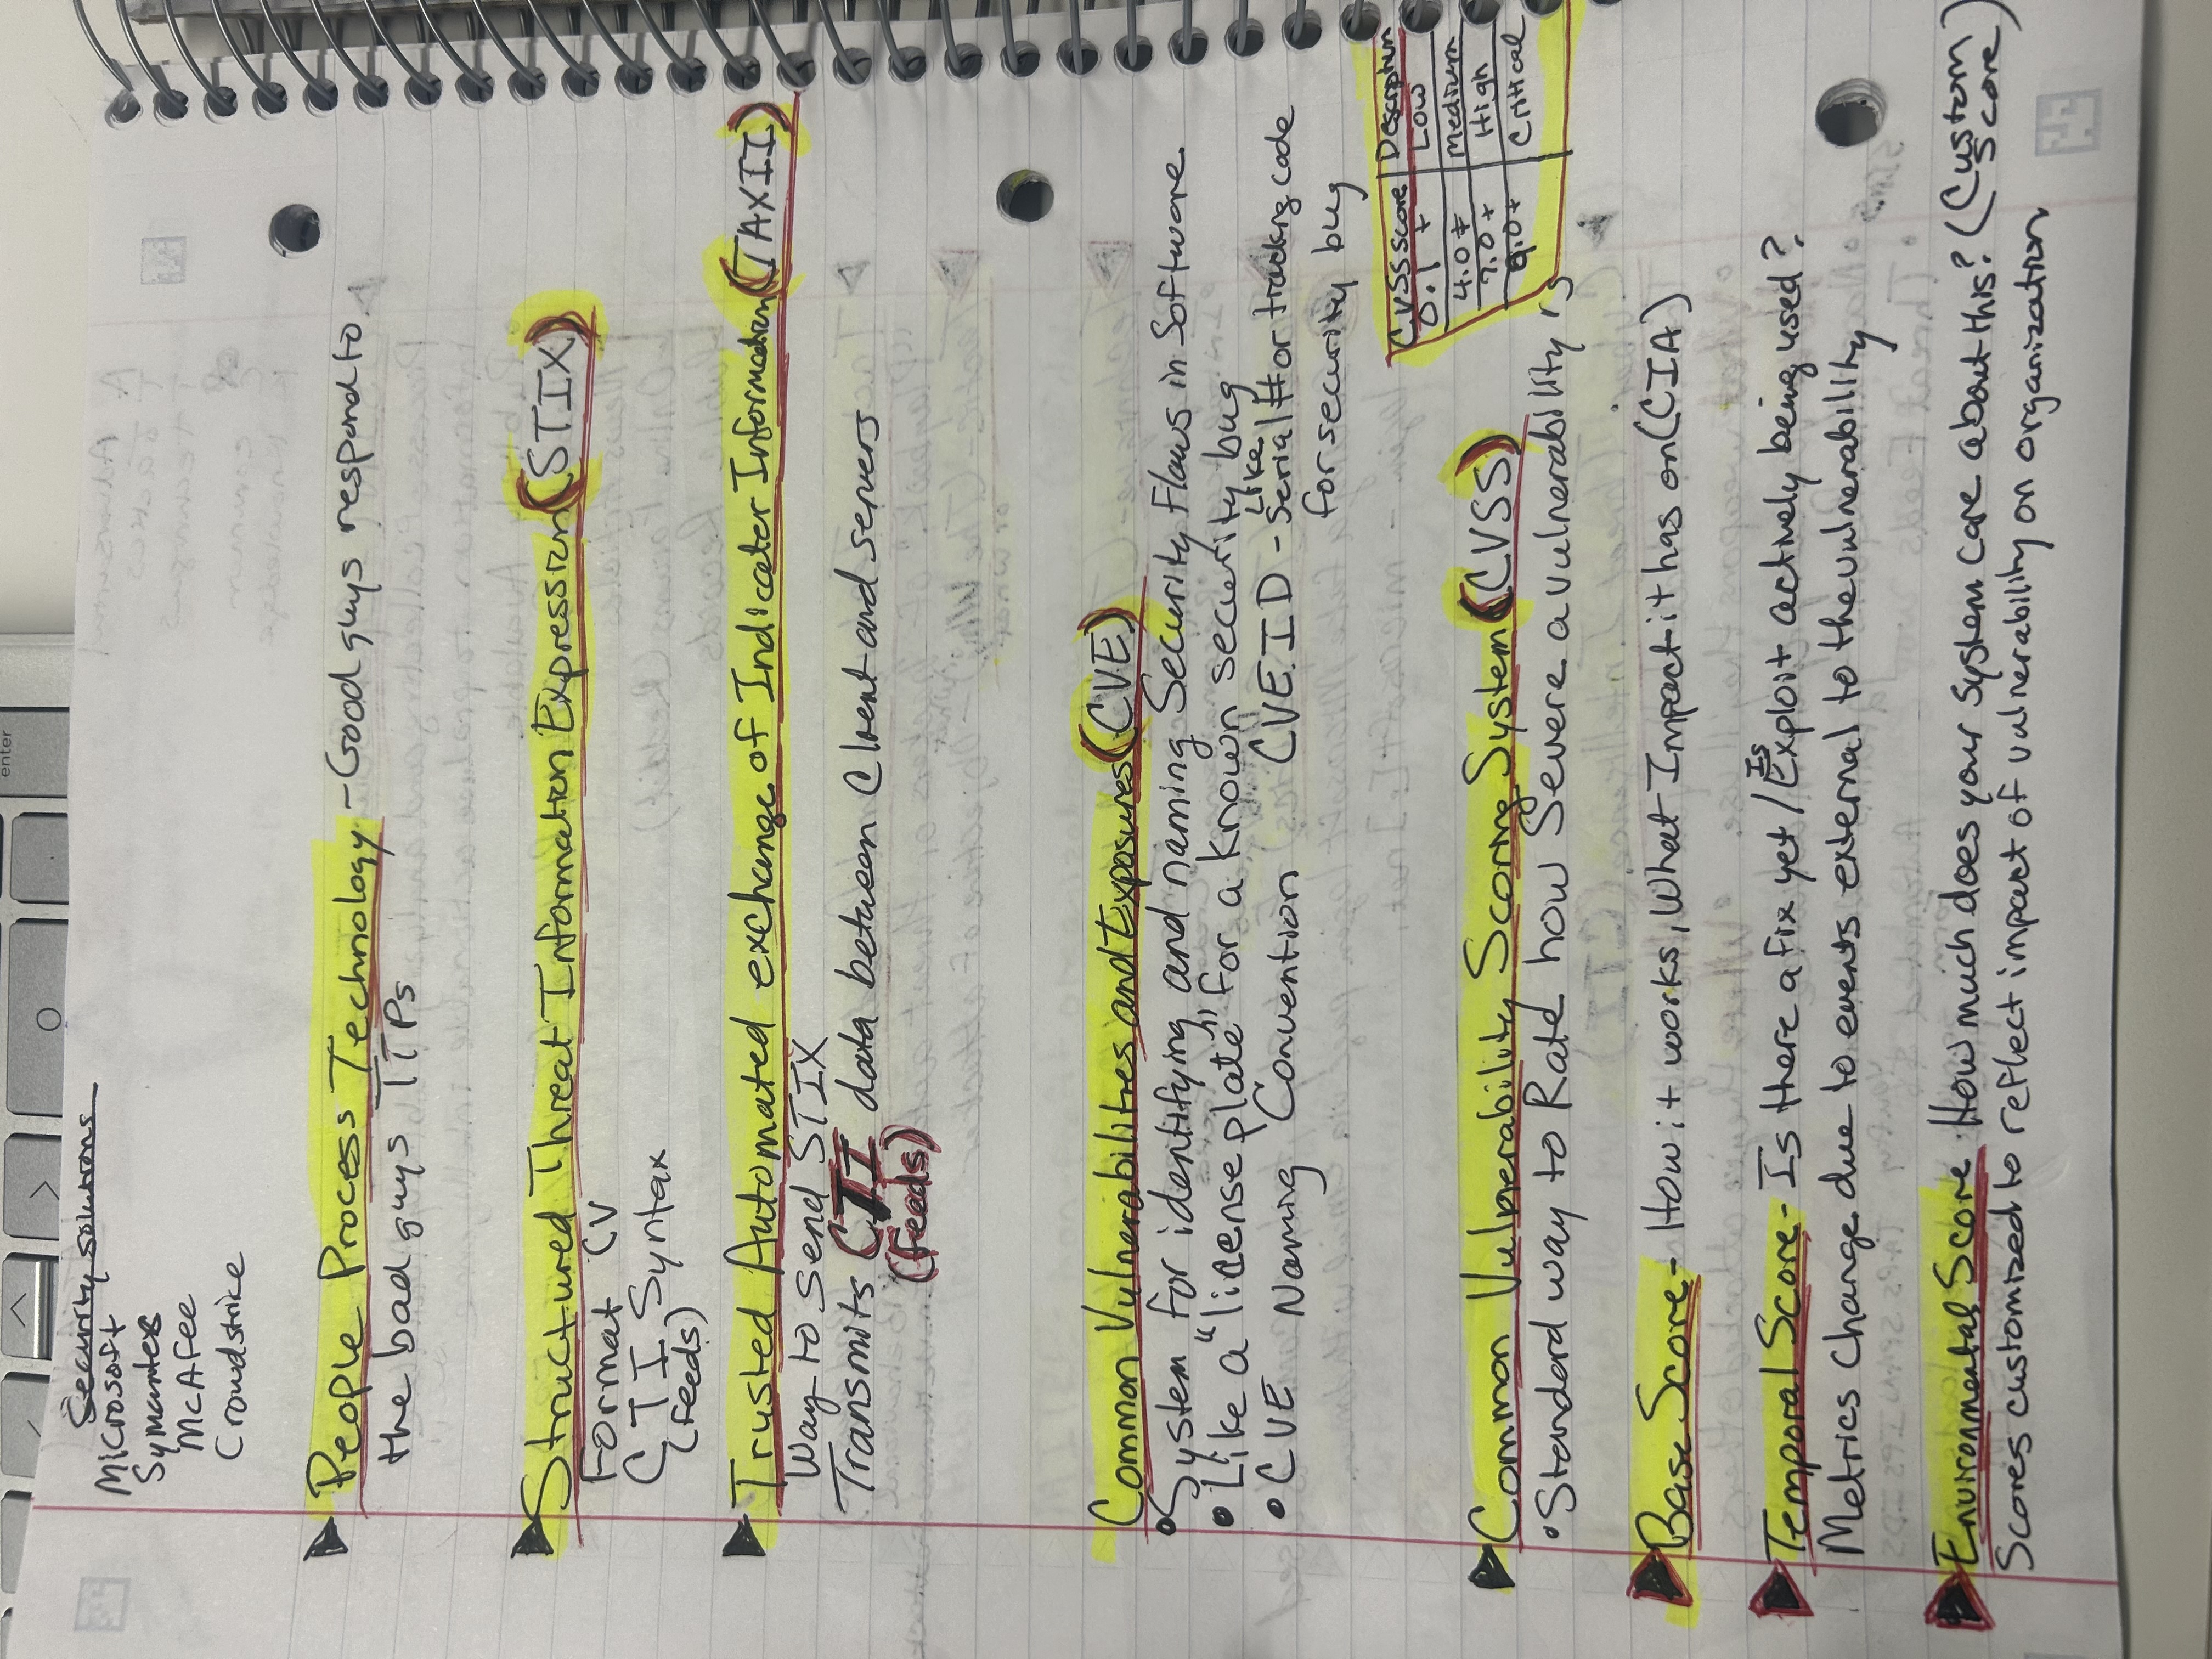 enter
Security solutions
Microsoft
Symantec
McAfee
Crowdstrike
People Process Technology - Good guys respond to
the bad guys TTPs
Structured Threat Information Expression (STIX)
Format CV
CTI Syntax
(feeds)
Trusted Automated exchange of Indicator Information (TAXII)
Way to send STIX
Transmits CTI data between Client and servers
(feeds)
Common Vulnerabilities and Exposures (CVE)
• System for identifying and naming Security Flaws in Software
• Like a "license plate" for a known security bug
• CVE Naming Convention CVE ID - Like Serial # or tracking code
for security bug
CVSS score Description
0.1 + Low
4.0 + Medium
7.0 + High
9.0 + Critical
Common Vulnerability Scoring System (CVSS)
• Standard way to Rate how Severe a vulnerability is
Base Score - How it works, What Impact it has on (CIA)
Temporal Score - Is there a fix yet / Is Exploit actively being used?
Metrics Change due to events external to the vulnerability
Environmental Score How much does your system care about this? (Custom Score)
Scores customized to reflect impact of vulnerability on organization